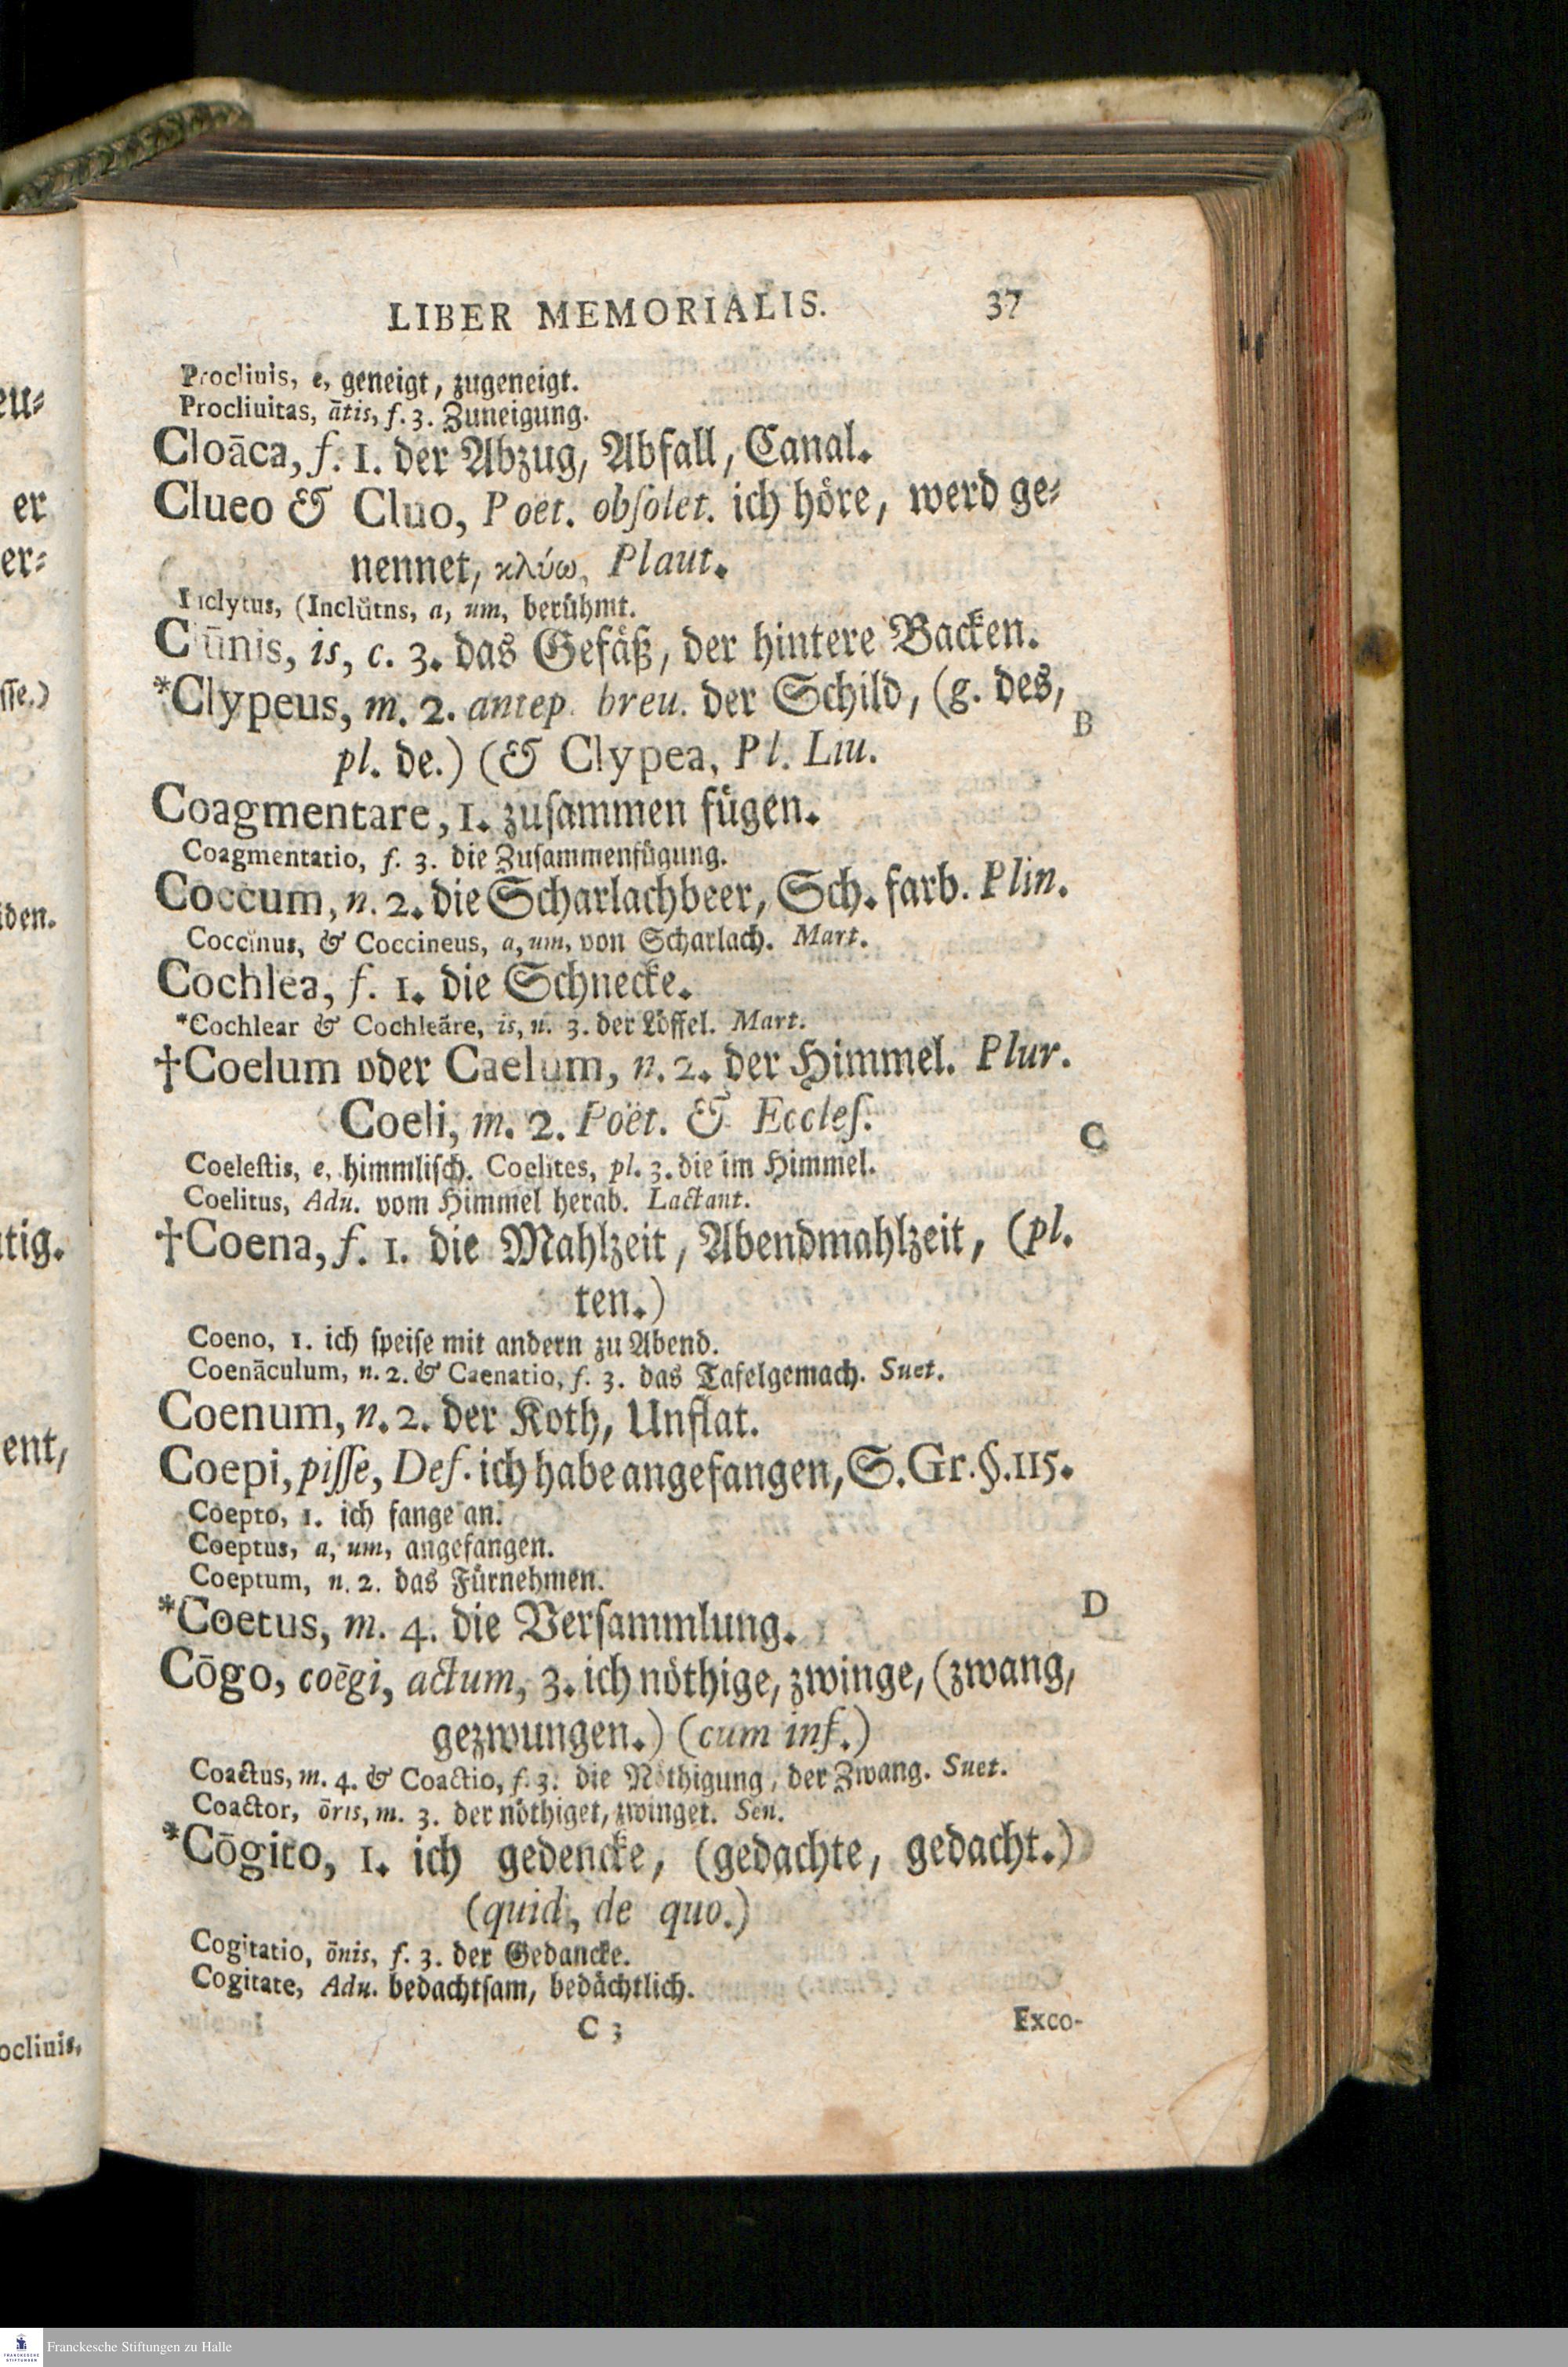 LIBER MEMORIALIS. 37
Procliuis, e, geneigt, zugeneigt.
Procliuitas, ātis, f. 3. Zuneigung.
Cloāca, f. 1. der Abzug, Abfall, Canal.
Clueo & Cluo, Poët. obſolet. ich höre, werd ge⸗
nennet, κλύω, Plaut.
Inclytus, (Inclŭtns, a, um, berühmt.
Clūnis, is, c. 3. das Gefäß, der hintere Backen.
*Clypeus, m. 2. antep. breu. der Schild, (g. des,
B
pl. de.) (& Clypea, Pl. Liu.
Coagmentare, 1. zuſammen fügen.
Coagmentatio, f. 3. die Zuſammenfügung.
Coccum, n. 2. die Scharlachbeer, Sch. farb. Plin.
Coccĭnus, & Coccineus, a, um, von Scharlach. Mart.
Cochlea, f. 1. die Schnecke.
*Cochlear & Cochleāre, is, n. 3. der Löffel. Mart.
†Coelum oder Caelum, n. 2. der Himmel. Plur.
Coeli, m. 2. Poët. & Eccleſ.
C
Coeleſtis, e, himmliſch. Coelites, pl. 3. die im Himmel.
Coelitus, Adu. vom Himmel herab. Lactant.
†Coena, f. 1. die Mahlzeit, Abendmahlzeit, (pl.
ten.)
Coeno, 1. ich ſpeiſe mit andern zu Abend.
Coenāculum, n. 2. & Caenatio, f. 3. das Tafelgemach. Suet.
Coenum, n. 2. der Koth, Unflat.
Coepi, piſſe, Def. ich habe angefangen, S. Gr. §. 115.
Coepto, 1. ich fange an.
Coeptus, a, um, angefangen.
Coeptum, n. 2. das Fürnehmen.
*Coetus, m. 4. die Verſammlung.
D
Cōgo, coēgi, actum, 3. ich nöthige, zwinge, (zwang,
gezwungen.) (cum inf.)
Coactus, m. 4. & Coactio, f. 3. die Nöthigung, der Zwang. Suet.
Coactor, ōris, m. 3. der nöthiget, zwinget. Sen.
*Cōgito, 1. ich gedencke, (gedachte, gedacht.)
(quid, de quo.)
Cogitatio, ōnis, f. 3. der Gedancke.
Cogitate, Adu. bedachtſam, bedächtlich.
C 3 Exco-
eu⸗
er
er⸗
ſſe.)
den.
tig.
ent,
ocliuis,
Franckesche Stiftungen zu Halle